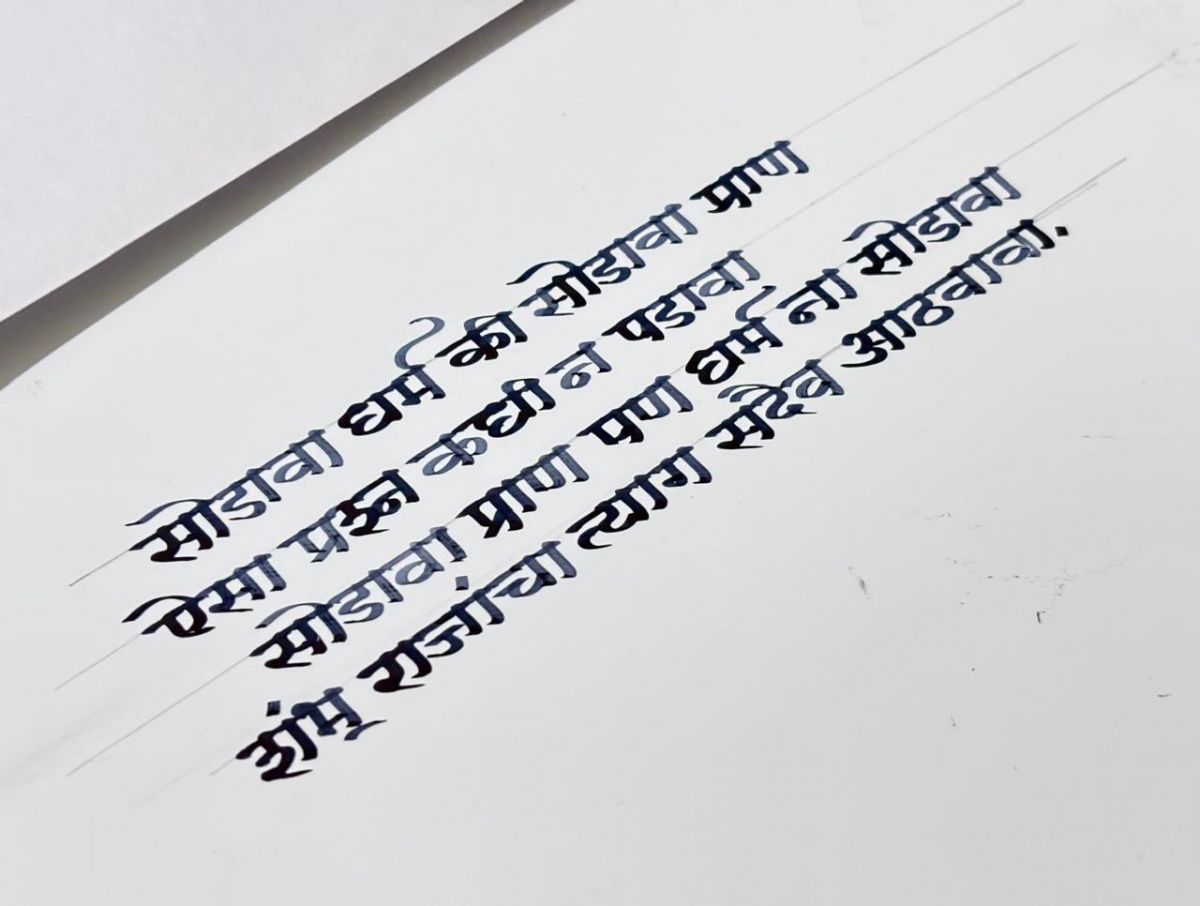 सोडावा धर्म की सोडावा प्राण
ऐसा प्रश्न कधी न पडावा
सोडावा प्राण पण धर्म ना सोडावा
शंभू राजांचा त्याग सदैव आठवावा.